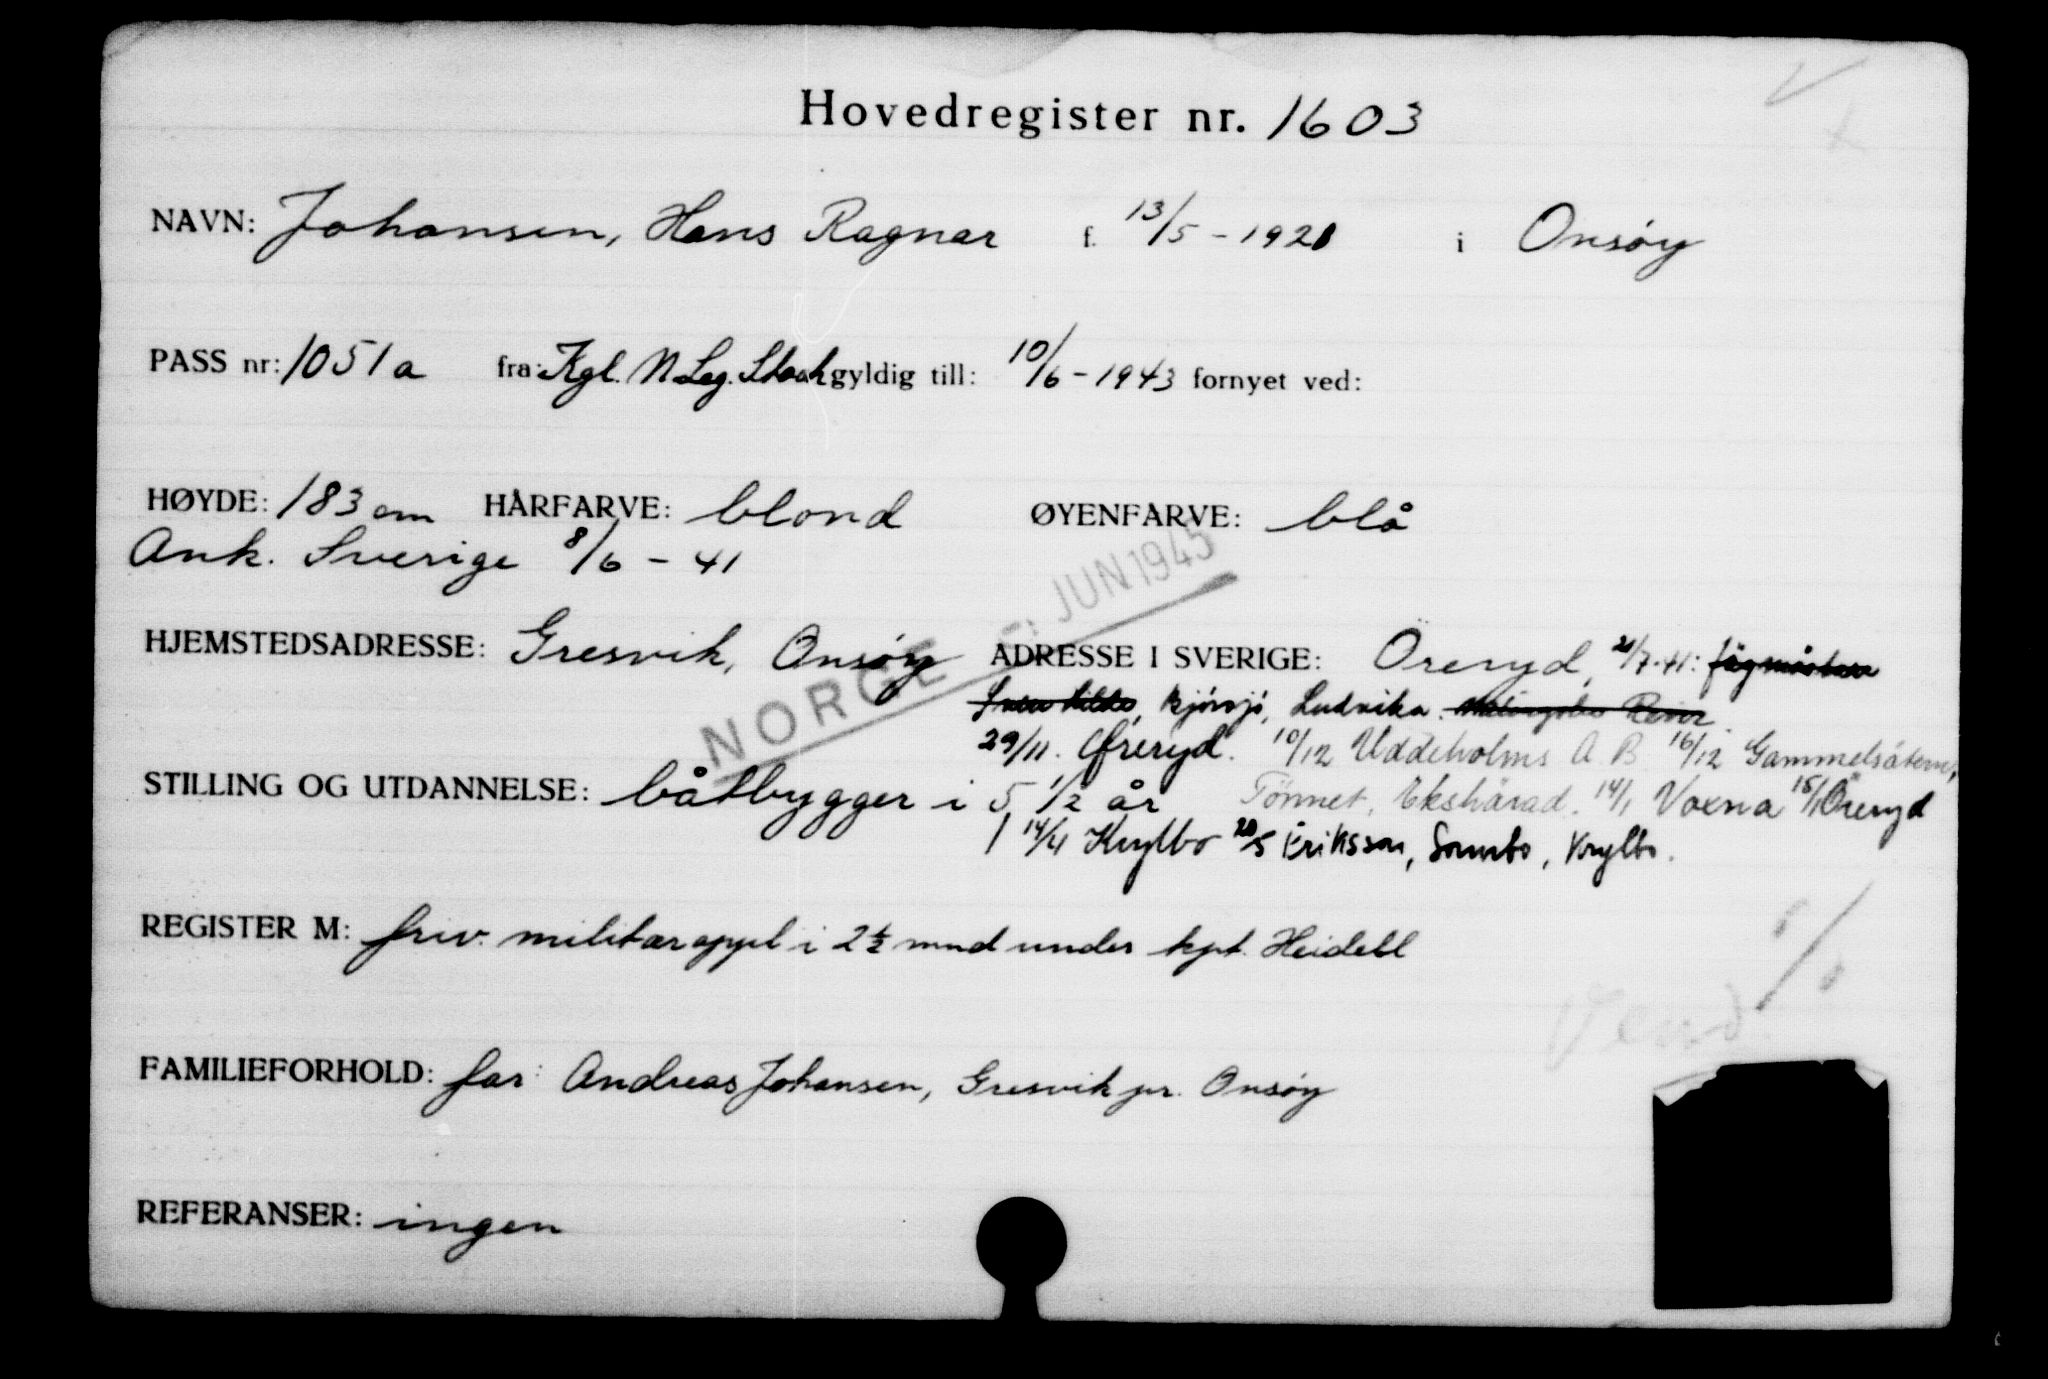 Hovedregister nr. 1603
NAVN: Johansen, Hans Ragnar f. 13/5 - 1920 i Onsøy
PASS nr: 1051a fra: Kgl. N Leg. Stock gyldig till: 10/6 - 1943 fornyet ved:
HØYDE: 183 cm HÅRFARVE: blond ØYENFARVE: blå
Ank. Sverige 8/6 - 41
JUN 1945
NORGE
HJEMSTEDSADRESSE: Gresvik, Onsøy ADRESSE I SVERIGE: Öreryd, 21/7-41: Jägmästare
Bjørsjö, Ludvika.
29/11. Öreryd. 10/12 Uddeholms A.B. 16/12 Gammelsätern,
STILLING OG UTDANNELSE: båtbygger i 5 1/2 år Tönnet, Ekshärad. 14/1 Voxna 15/1 Öreryd
14/4 Krylbo 20/5 Eriksson, Krylbo.
REGISTER M: friv. militærappel i 2 1/2 mnd under kpt. Heidell
Vend
FAMILIEFORHOLD: far: Andreas Johansen, Gresvik pr. Onsøy
REFERANSER: ingen